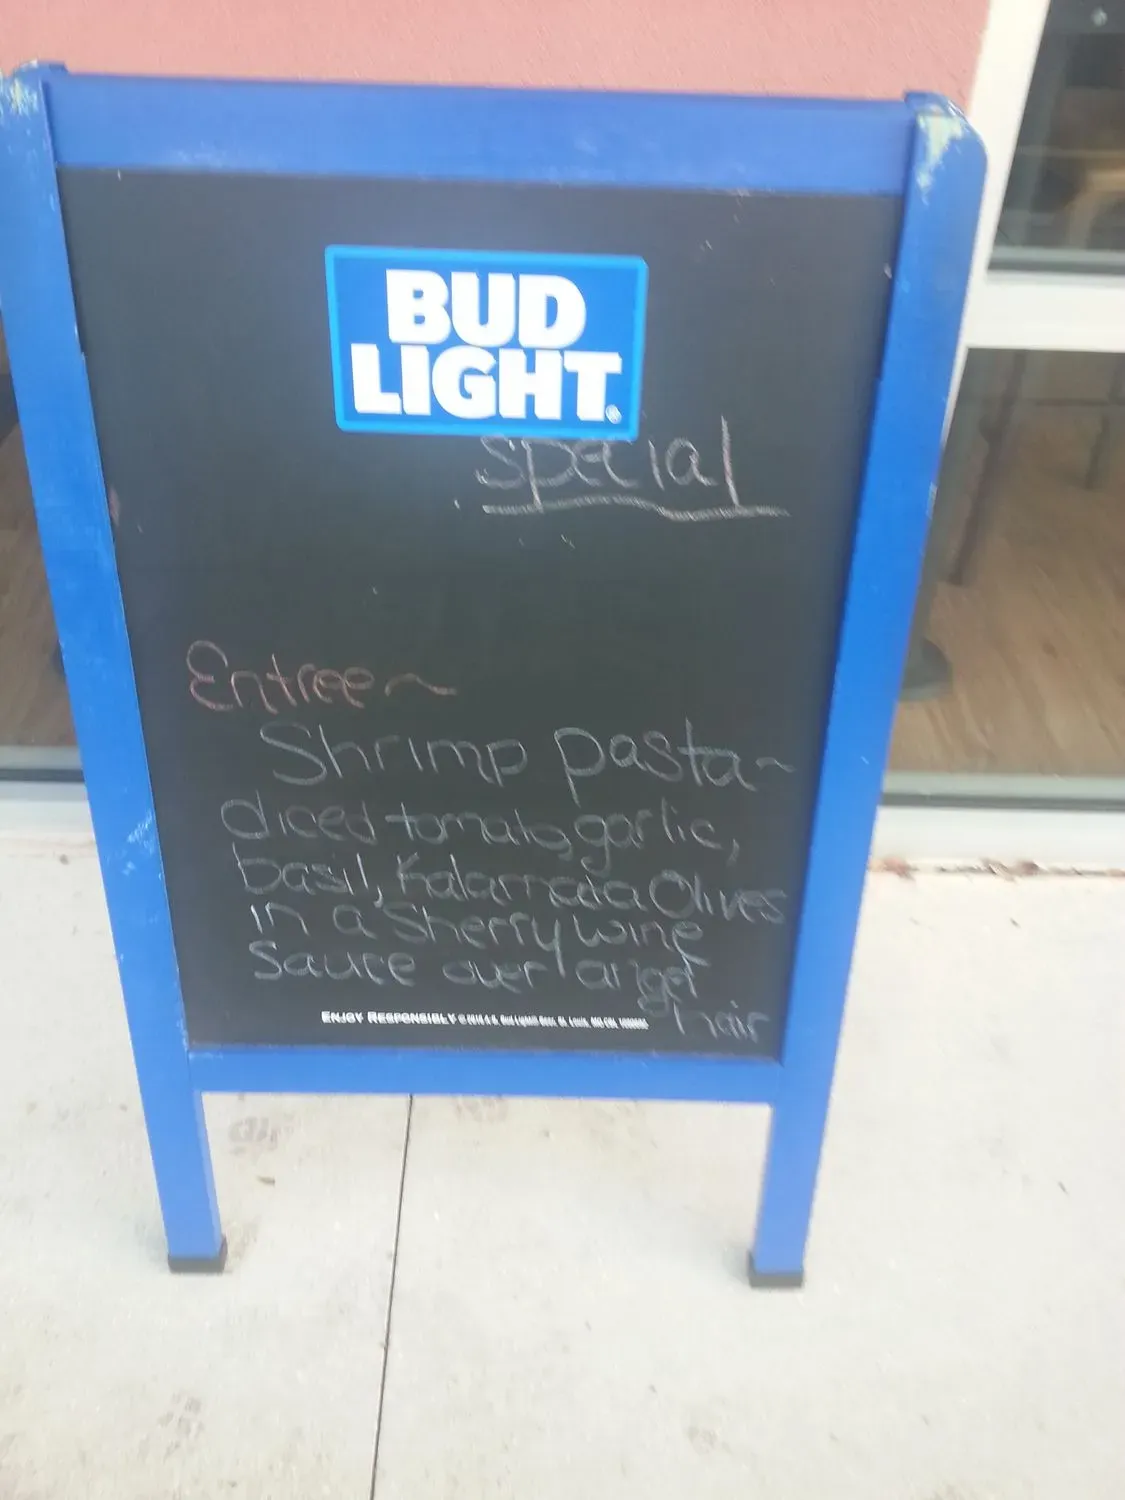 BUD
LIGHT
special
Entree~
Shrimp pasta~
diced tomato, garlic,
basil, Kalamata Olives
in a Sherry wine
Sauce over angel
hair
ENJOY RESPONSIBLY